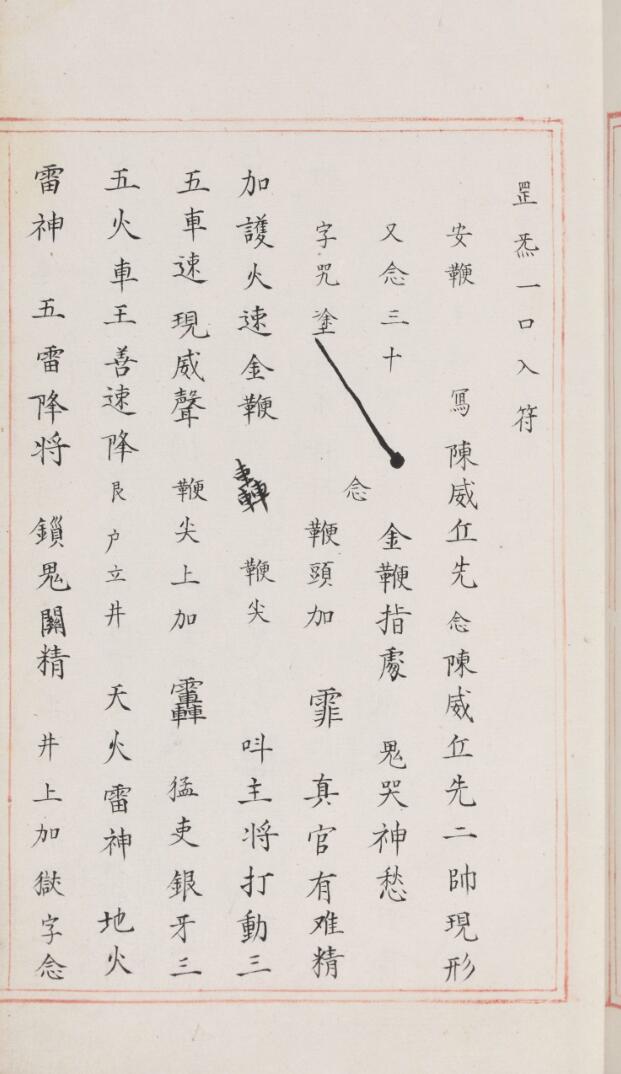 罡炁一口入符
安鞭 寫陳威丘先念陳威丘先二帥現形
又念三十 金鞭指處 鬼哭神愁
字咒塗 念 鞭頭加 霏 真官有难精
加護火速金鞭 鞭尖 呌主将打動三
五車速現威聲 鞭尖上加 猛吏銀牙三
五火車王善速降 艮户立井 天火雷神 地火
雷神 五雷降将 鎖鬼關精 井上加獄字念